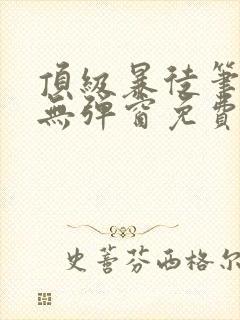 頂級暴徒筆
無彈窗免費
史蒂芬西格尔